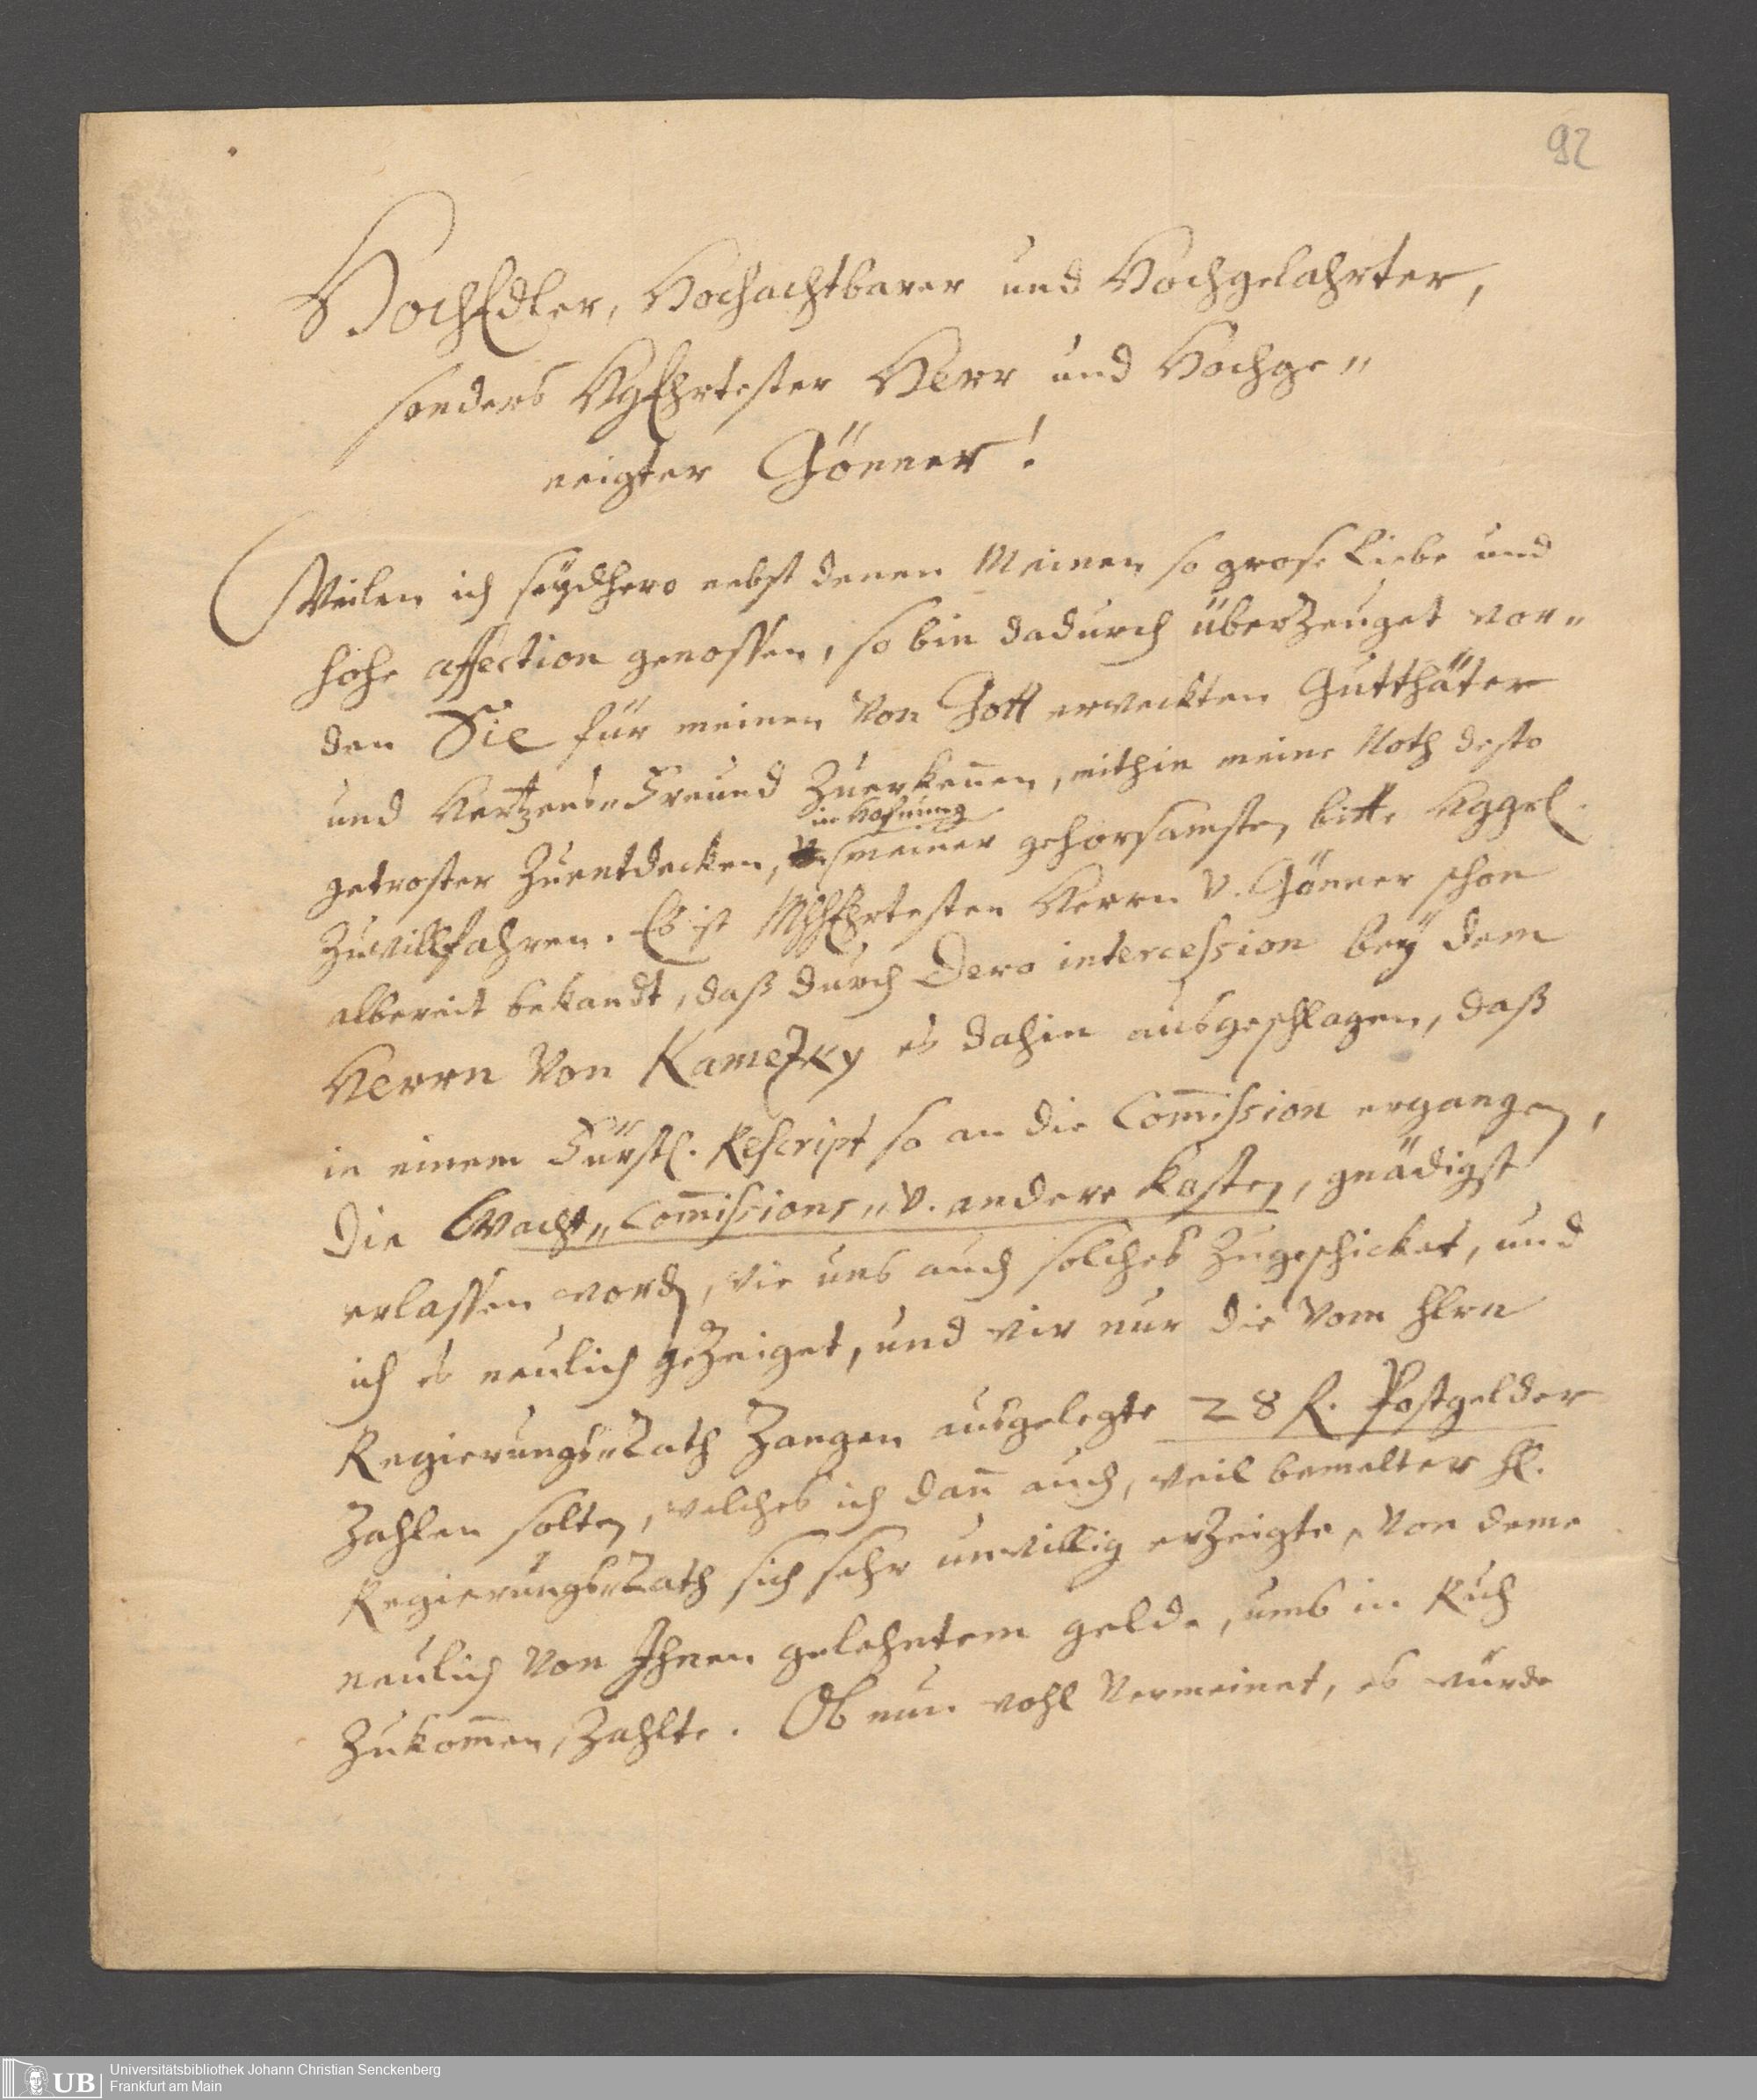 92
HochEdler, Hochachtbarer und Hochgelahrter,
sonders HgEhrtester Herr und Hochge„
neigter Gönner!
Weilen ich seydhero nebst denen Meinen so grose Liebe und
hohe affection genossen, so bin dadurch überzeuget wor„
den Sie für meinen von Gott erweckten Gutthäter
und Hertzens„Freund zuerkeñen, mithin meine Noth desto
in Hofnung
getroster zuentdecken, meiner gehorsamsten bitte
zuwillfahren. Es ist HhEhrtesten Herrn v. Gönner schon
albereit bekandt, daß durch Dero intercession bey dem
Herrn von Kamezky es dahin ausgeschlagen, daß
in einem Fürstl. Rescript so an die Com̃ission ergangen,
die Wacht„ Com̃issions„ v. andere Kosten, gnädigst
erlassen word, wie uns auch solches zugeschicket, und
ich es neulich gezeiget, und wir nur die vom Hrn
Regierungs„Rath Zangen ausgelegte 28 fl. Postgelder
zahlen solten, welches ich dañ auch, weil bemelter H.
Regierungs„Rath sich sehr unwillig erzeigte, von deme
neulich von Ihnen gelehntem gelde, umb in Ruh
zukom̃en, zahlte. Ob nun wohl vermeinet, es würde
UB Universitätsbibliothek Johann Christian Senckenberg
Frankfurt am Main